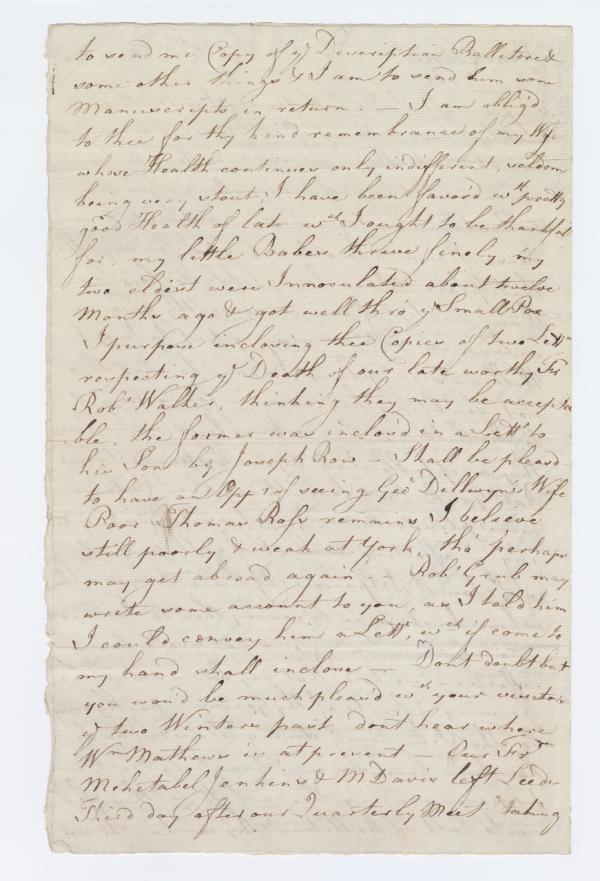 to send me Copy of yͤ Description Ballitore &
some other things & I am to send him some
Manuscripts in return. — I am oblig'd
to thee for thy kind remembrance of my Wife
whose Health continues only indifferent, seldom
being very stout; I have been favor'd wth pretty
good Health of late wch I ought to be thankful
for, my little Babes thrive finely, my
two eldest were Innoculated about twelve
Months ago & got well thro' yͤ Small Pox
I purpose inclosing thee Copies of two Lettrs
respecting yͤ Death of our late worthy Frd
Robt Walker, thinking they may be accepta
ble, the former was inclos'd in a Lettr to
his Son by Joseph Row — Shall be pleas'd
to have an Oppy of seeing Geo Dillwyn's Wife
Poor Thomas Ross remains I believe
still poorly & weak at York, tho' perhaps
may get abroad again. — Robt Grub may
write some account to you, as I told him
I could convey him a Lettr, wch if come to
my hand shall inclose — Don't doubt but
you wou'd be much pleas'd wth your visitors
yͤ two Winters past, don't hear where
Wm Mathews is at present — Our Frds
Mehetabel Jenkins & M Davis left Leeds
Third day after our Quarterly Meetg taking